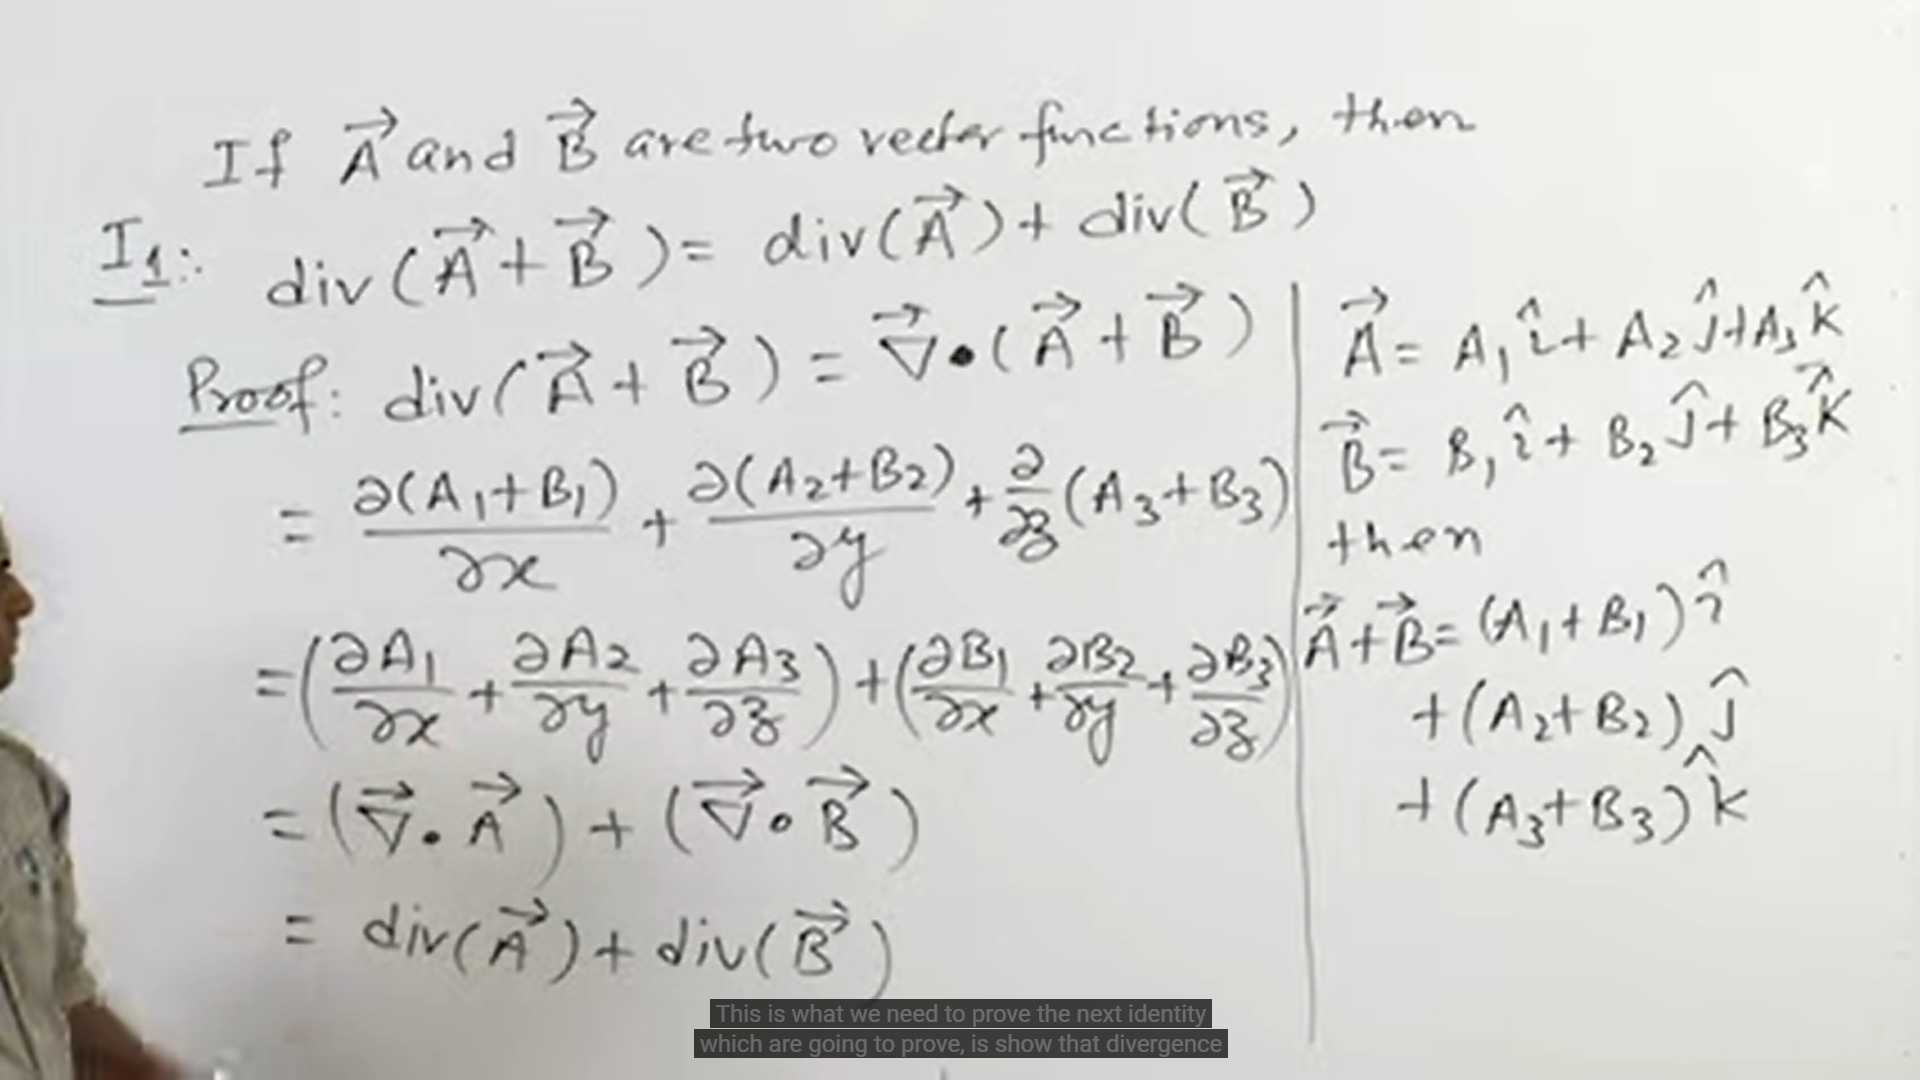 If A⃗ and B⃗ are two vector functions, then
I₁: div(A⃗ + B⃗) = div(A⃗) + div(B⃗)
Proof: div(A⃗ + B⃗) = ∇⃗•(A⃗ + B⃗)
= ∂(A₁+B₁)/∂x + ∂(A₂+B₂)/∂y + ∂/∂z (A₃+B₃)
= (∂A₁/∂x + ∂A₂/∂y + ∂A₃/∂z) + (∂B₁/∂x + ∂B₂/∂y + ∂B₃/∂z)
= (∇⃗•A⃗) + (∇⃗•B⃗)
= div(A⃗) + div(B⃗)
A⃗ = A₁î + A₂ĵ + A₃k̂
B⃗ = B₁î + B₂ĵ + B₃k̂
then
A⃗+B⃗ = (A₁+B₁)î
+(A₂+B₂)ĵ
+(A₃+B₃)k̂
This is what we need to prove the next identity
which are going to prove, is show that divergence